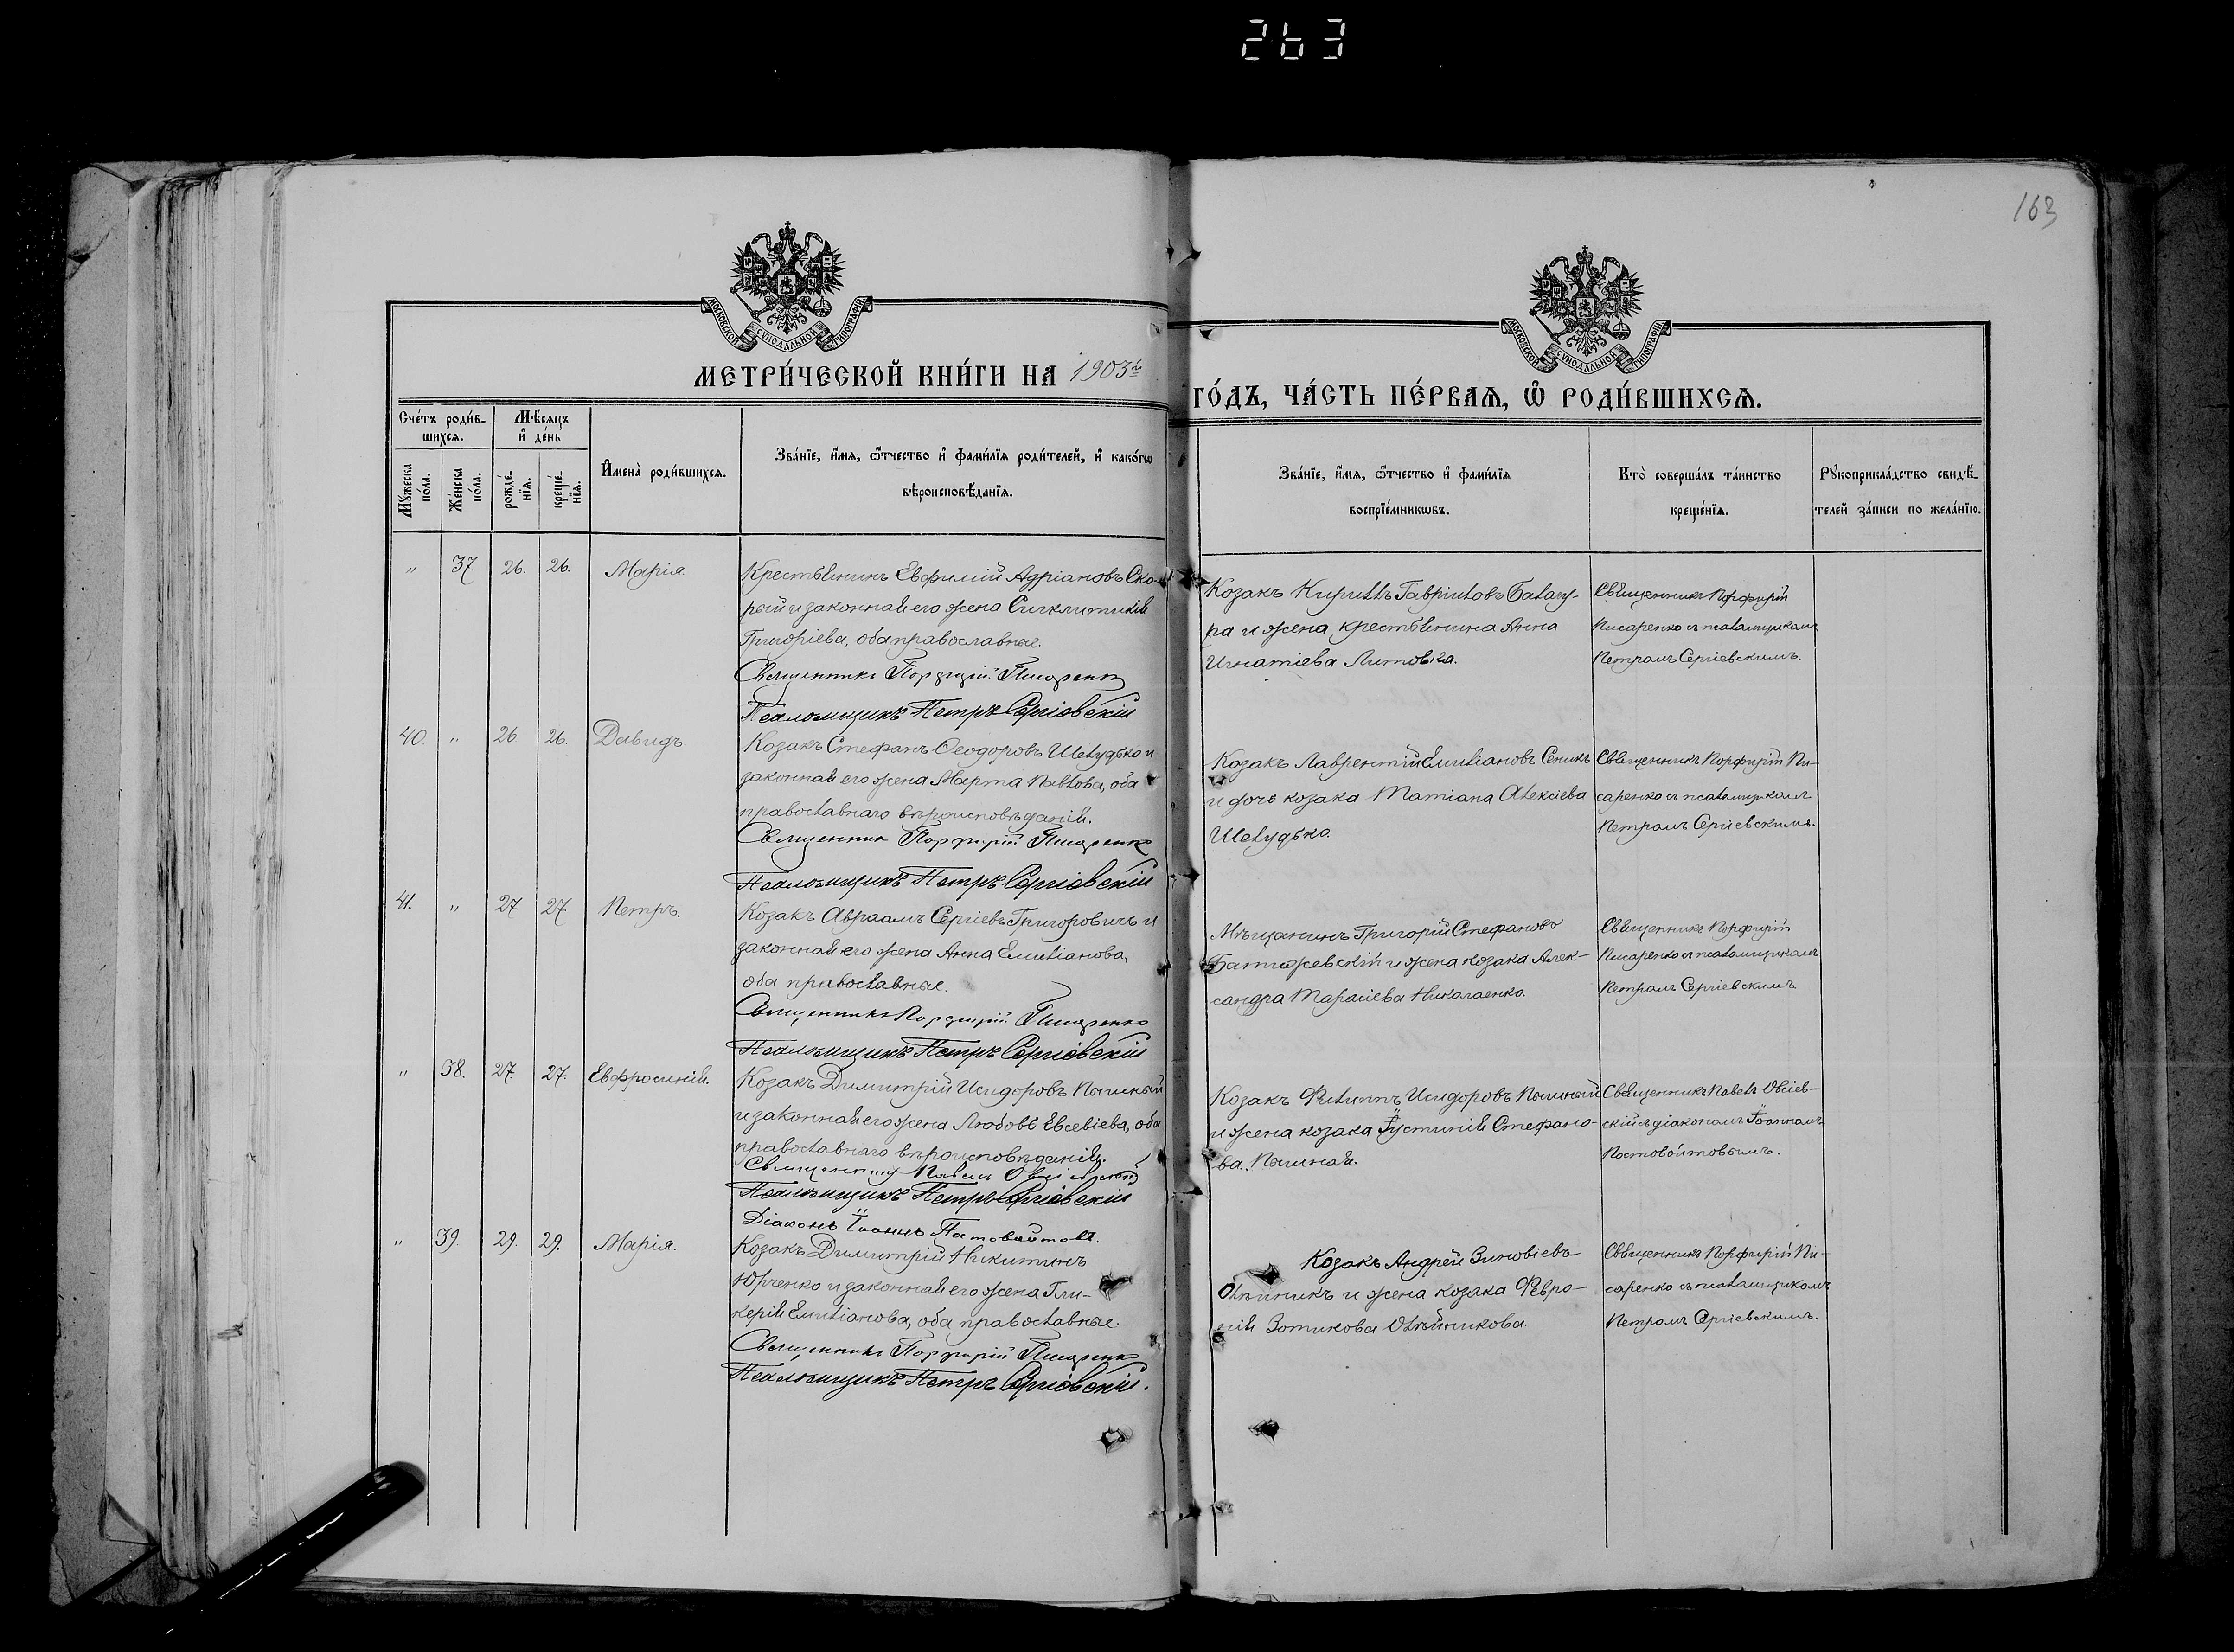 263
163
МОСКОВСКОЙ СУНОДАЛЬНОЙ ТИПОГРАФІИ
МОСКОВСКОЙ СУНОДАЛЬНОЙ ТИПОГРАФІИ
МЕТРИ́ЧЕСКОЙ КНИ́ГИ НА 1903й
ГО́ДЪ, ЧА́СТЬ ПЕ́РВАѦ, Ѡ РОДИ́ВШИХСѦ.
Сче́тъ роди́в-
шихсѧ.
Мѣ́сѧцъ
и҆ де́нь
Мꙋ́жеска
по́ла.
Же́нска
по́ла.
рожде́-
нїѧ.
креще́-
нїѧ.
И҆мена̀ роди́вшихсѧ.
Зва́нїе, и҆́мѧ, ѻ҆́тчество и҆ фами́лїѧ роди́телей, и҆ како́гѡ
вѣроисповѣ́данїѧ.
Зва́нїе, и҆́мѧ, ѻ҆́тчество и҆ фами́лїѧ
воспрїе́мникѡвъ.
Кто̀ соверша́лъ та́инство
креще́нїѧ.
Рꙋкоприкла́дство свидѣ́-
телей за́писи по жела́нїю.
" 37. 26. 26. Марія.
Крестьянинъ Евфимій Адріановъ Ско-
рый и законная его жена Синклитикія
Григоріева, оба православные.
Священникъ Порфирій Писаренко
Псаломщикъ Петръ Сергіевскій
Козакъ Кириллъ Гавриловъ Балау-
ра и жена крестьянина Анна
Игнатіева Литовка.
Священникъ Порфирій
Писаренко съ псаломщикомъ
Петромъ Сергіевскимъ.
40. " 26 26. Давидъ.
Козакъ Стефанъ Ѳеодоровъ Шелудько и
законная его жена Марта Павлова, оба
православнаго вѣроисповѣданія.
Священник Порфирій Писаренко
Псаломщикъ Петръ Сергіевскій
Козакъ Лаврентій Емиліановъ Сеникъ
и дочь козака Татіана Алексіева
Шелудько.
Священникъ Порфирій Пи-
саренко съ псаломщикомъ
Петромъ Сергіевскимъ.
41. " 27 27 Петръ.
Козакъ Авраамъ Сергіевъ Григоровичъ и
законная его жена Анна Емиліанова,
оба православные.
Священникъ Порфирій Писаренко
Псаломщикъ Петръ Сергіевскій
Мѣщанинъ Григорій Стефановъ
и жена козака Алек-
сандра Тарасіева Николаенко.
Священникъ Порфирій
Писаренко съ псаломщикомъ
Петромъ Сергіевскимъ
" 38. 27. 27. Евфросинія.
Козакъ Димитрій Исидоровъ
и законная его жена Любовь Евсевіева, оба
православнаго вѣроисповѣданія.
Священник Павелъ Овсіевскій
Псаломщикъ Петръ Сергіевскій
Діаконъ Іоаннъ Постовойтовъ.
Козакъ Филиппъ Исидоровъ
и жена козака Іустинія Стефано-
ва
Священникъ Павелъ Овсіев-
скій съ діакономъ Іоанномъ
Постовойтовымъ.
" 39. 29. 29. Марія.
Козакъ Димитрій Никитинъ
Юрченко и законная его жена Гли-
керія Емиліанова, оба православные.
Священникъ Порфирій Писаренко
Псаломщикъ Петръ Сергіевскій.
Козакъ Андрей Зиновіевъ
Олѣйникъ и жена козака Февро-
нія Зотикова Олѣйникова.
Священникъ Порфирій Пи-
саренко съ псаломщикомъ
Петромъ Сергіевскимъ.